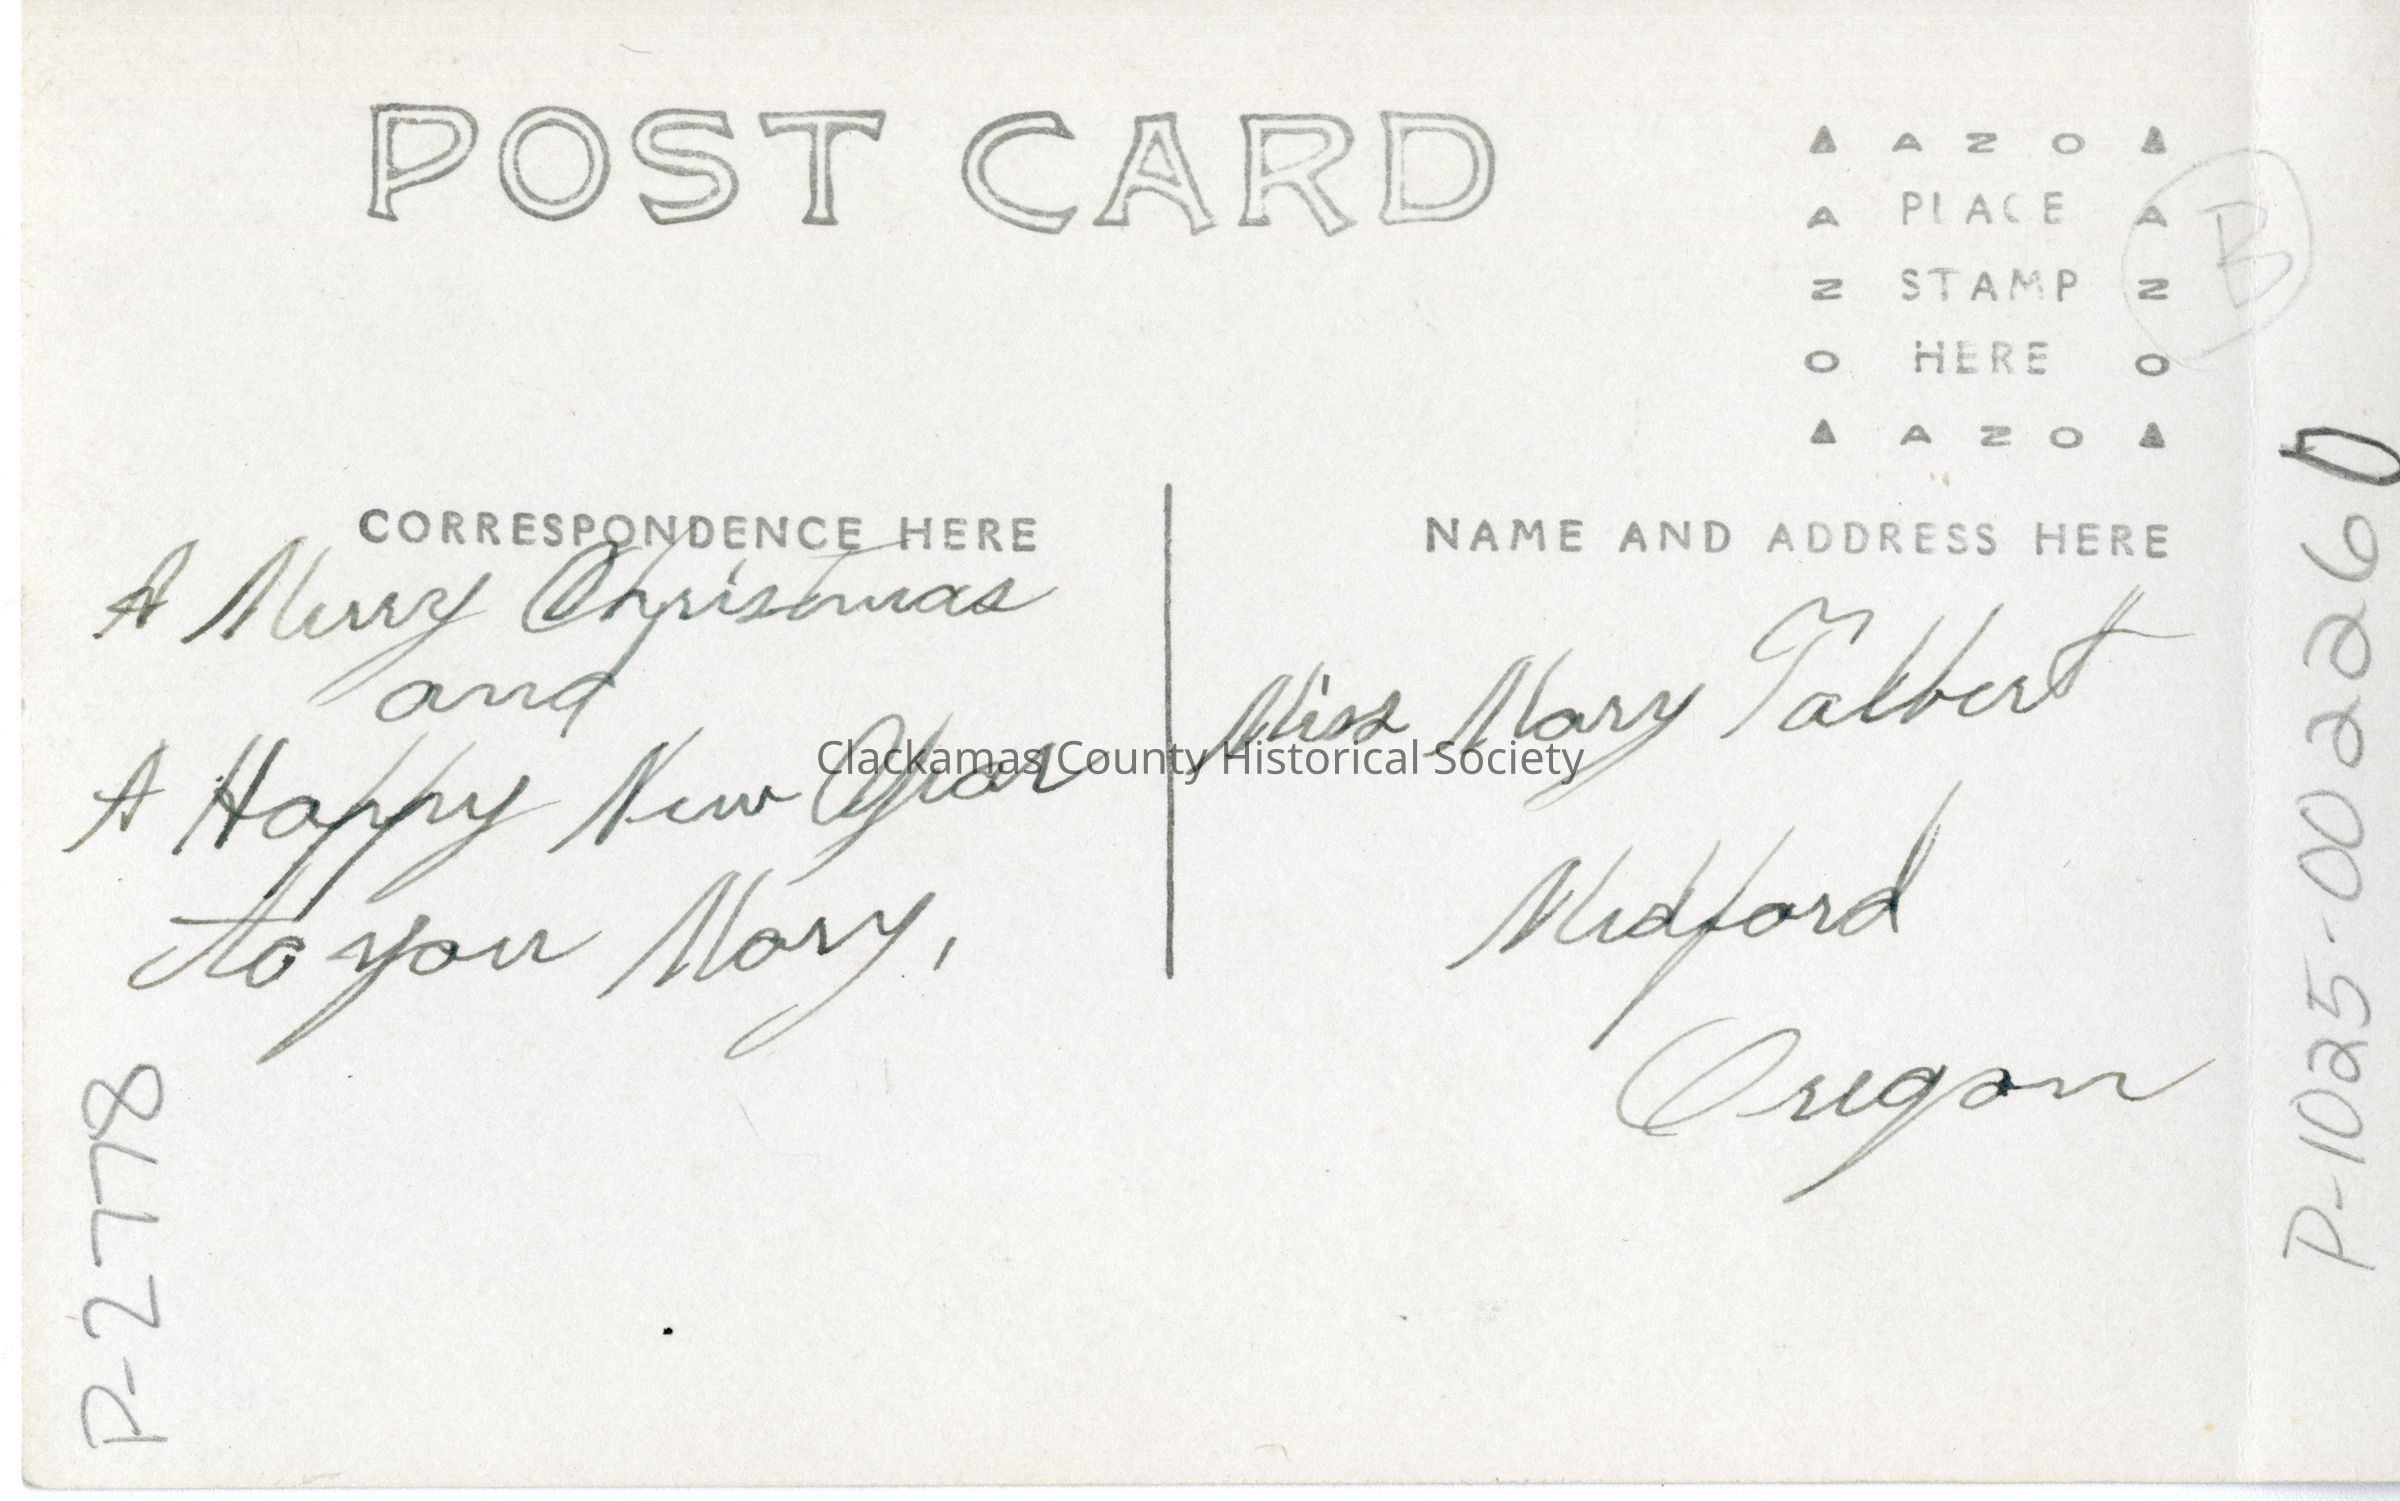 POST CARD
▲ A Z O ▲
A PLACE A
Z STAMP Z
O HERE O
▲ A Z O ▲
B
CORRESPONDENCE HERE
A Merry Christmas
and
A Happy New Year
to you Mary,
NAME AND ADDRESS HERE
Miss Mary Talbert
Medford
Oregon
Clackamas County Historical Society
P-2778
P-1025-002260